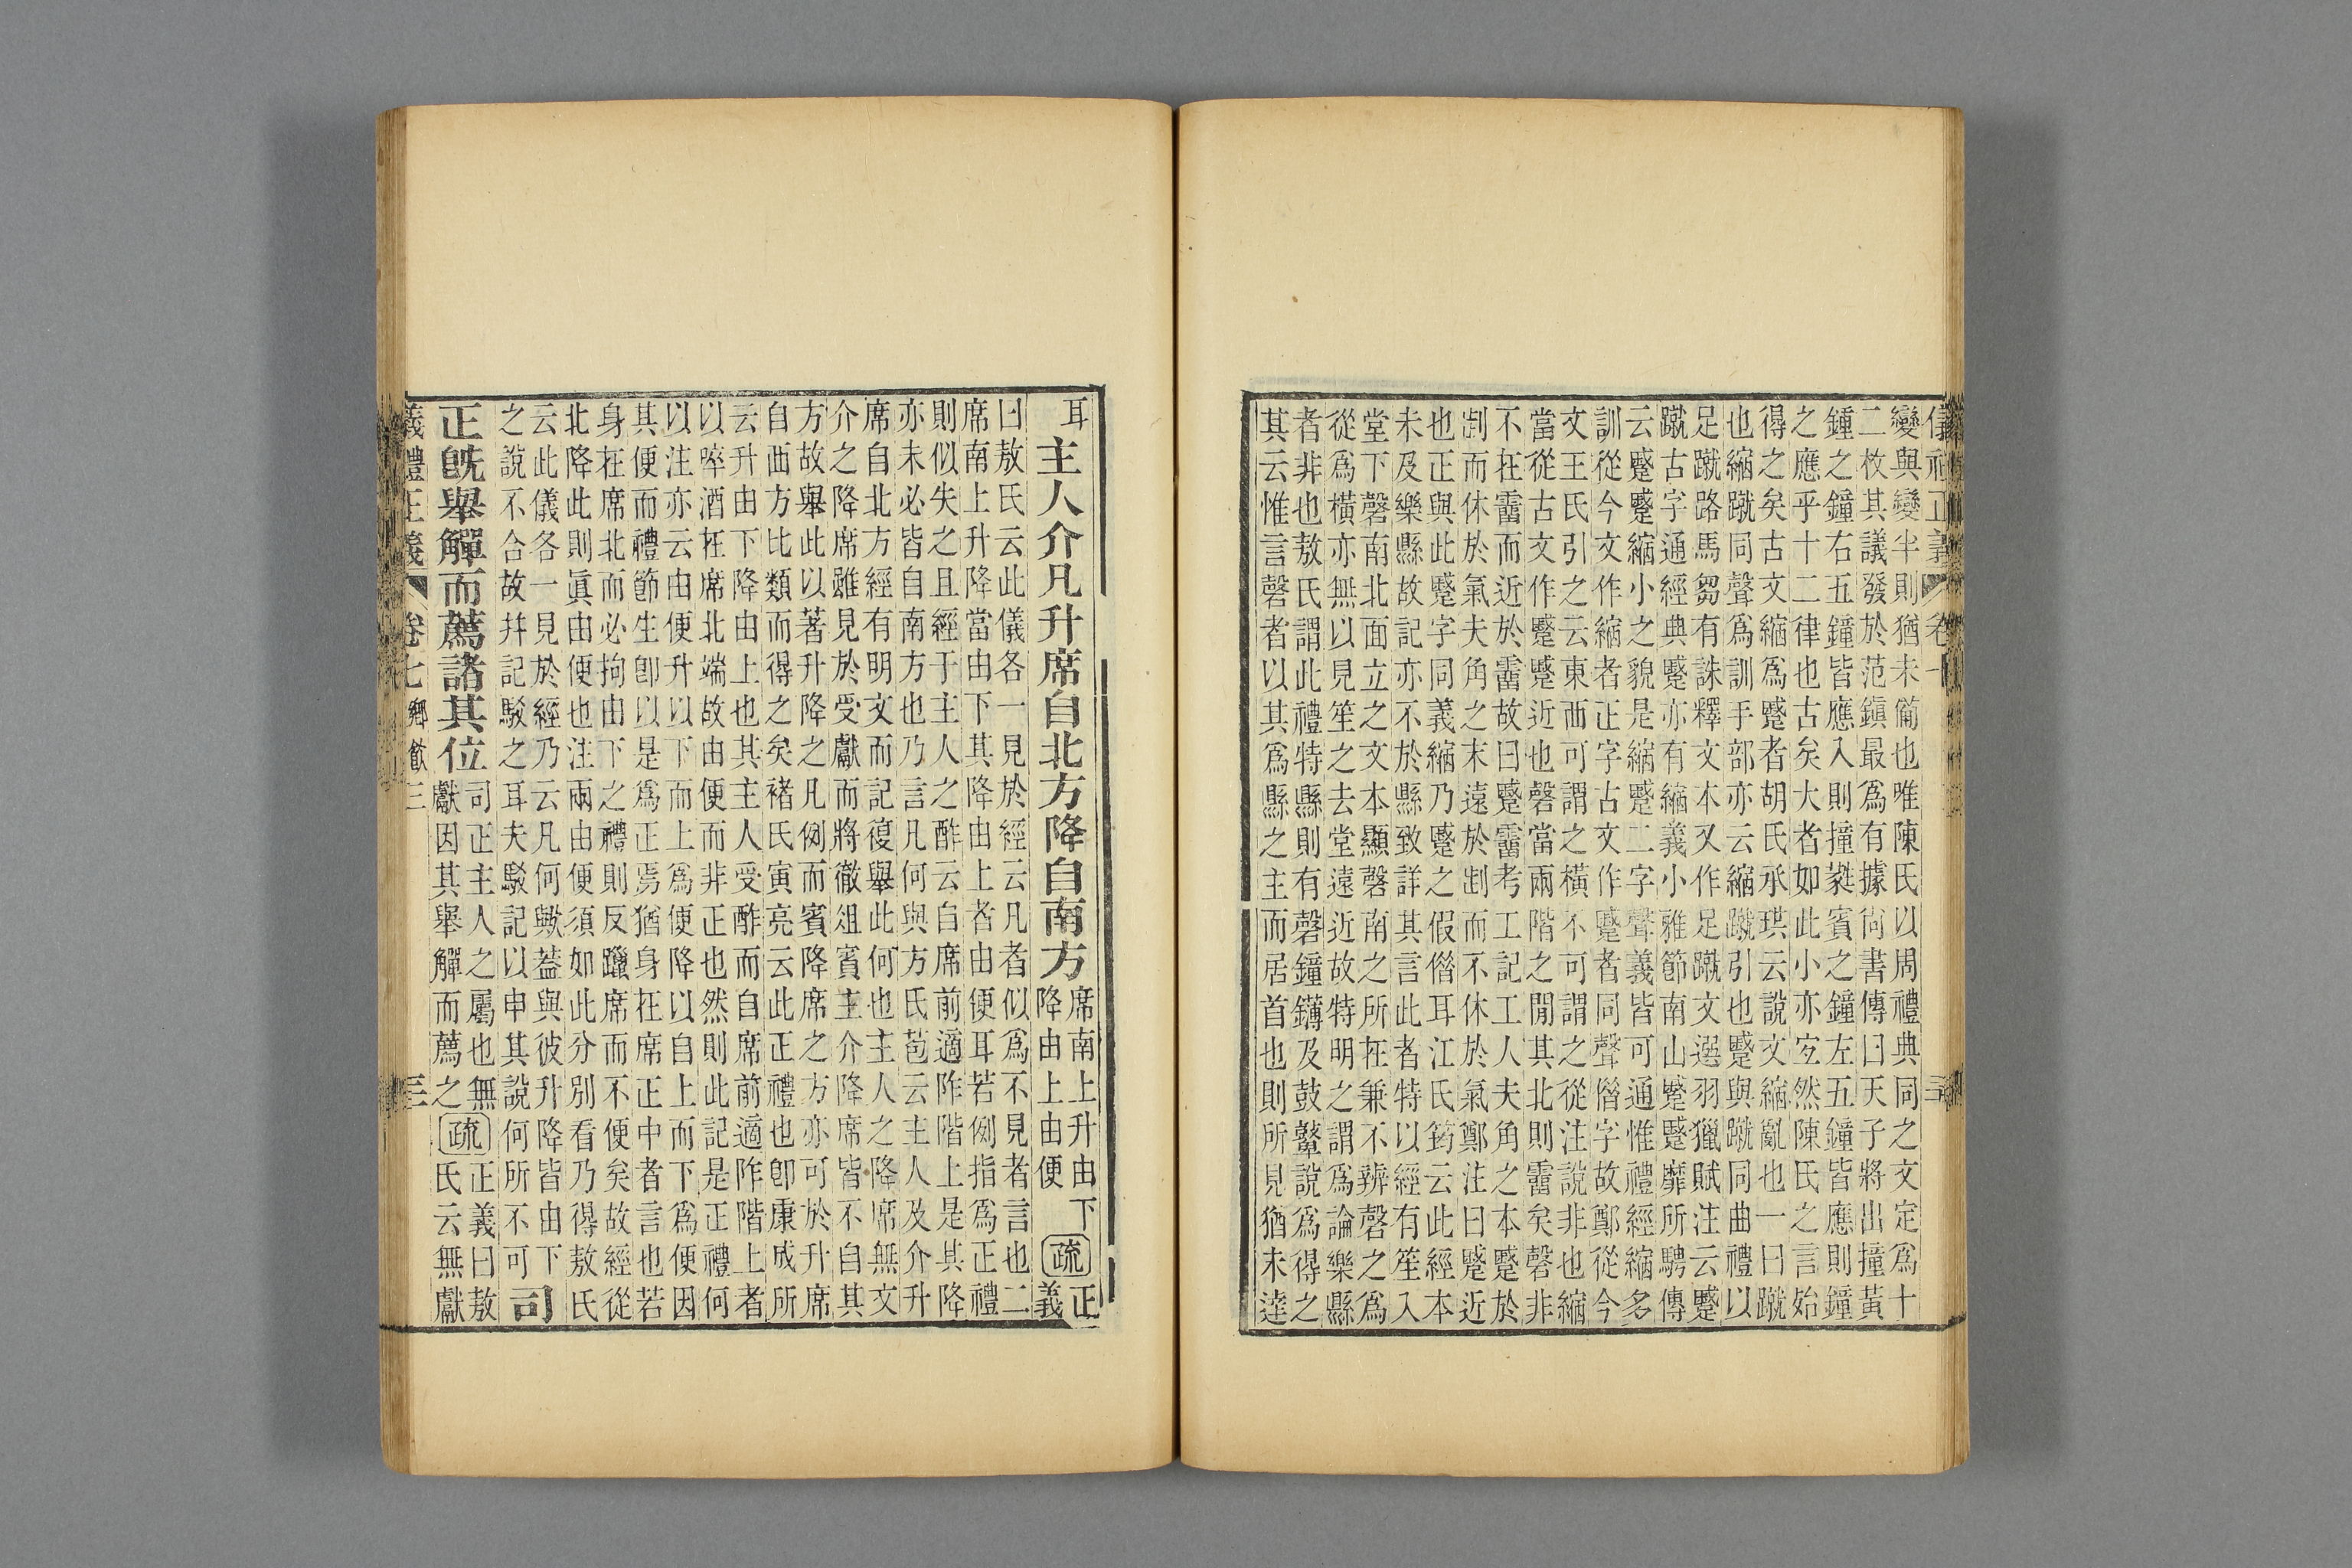 儀禮正義 卷
變與變半則猶未籥也唯陳氏以周禮典同之文定爲十
二枚其議發於范鎭最爲有據尙書傳曰天子將出撞黃
鍾之鐘右五鐘皆應入則撞蕤賓之鐘左五鐘皆應則鐘
之應乎十二律也古矣大者如此小亦宐然陳氏之言始
得之矣古文縮爲蹙者胡氏承珙云說文縮亂也一曰蹴
也縮蹴同聲爲訓手部亦云縮蹴引也蹙與蹴同曲禮以
足蹴路馬芻有誅釋文本又作足蹴文選羽獵賦注云蹙
蹴古字通經典蹙亦有縮義小雅節南山蹙蹙靡所騁傳
云蹙蹙縮小之貌是縮蹙二字聲義皆可通惟禮經縮多
訓從今文作縮者正字古文作蹙者同聲偺字故鄭從今
文王氏引之云東西可謂之橫不可謂之從注說非也縮
當從古文作蹙蹙近也磬當兩階之閒其北則霤矣磬非
不在霤而近於霤故曰蹙霤考工記工人夫角之本蹙於
剒而休於氣夫角之末遠於剒而不休於氣鄭注曰蹙近
也正與此蹙字同義縮乃蹙之假偺耳江氏筠云此經本
未及樂縣故記亦不於縣致詳其言此者特以經有笙入
堂下磬南北面立之文本顯磬南之所在兼不辨磬之爲
從爲橫亦無以見笙之去堂遠近故特明之謂爲論樂縣
者非也敖氏謂此禮特縣則有磬鐘鑮及鼓鼙說爲得之
其云惟言磬者以其爲縣之主而居首也則所見猶未達
耳
主人介凡升席自北方降自南方
席南上升由下
降由上由便
疏
正
義
曰敖氏云此儀各一見於經云凡者似爲不見者言也二
席南上升降當由下其降由上者由便耳若例指爲正禮
則似失之且經于主人之酢云自席前適阼階上是其降
亦未必皆自南方也乃言凡何與方氏苞云主人及介升
席自北方經有明文而記復舉此何也主人之降席無文
介之降席雖見於受獻而將徹俎賓主介降席皆不自其
方故舉此以著升降之凡例而賓降席之方亦可於升席
自西方比類而得之矣褚氏寅亮云此正禮也卽康成所
云升由下降由上也其主人受酢而自席前適阼階上者
以啐酒在席北端故由便而非正也然則此記是正禮何
以注亦云由便升以下而上爲便降以自上而下爲便因
其便而禮節生卽以是爲正焉猶身在席正中者言也若
身在席北而必拘由下之禮則反躐席而不便矣故經從
北降此則眞由便也注兩由便須如此分別看乃得敖氏
云此儀各一見於經乃云凡何歟葢與彼升降皆由下
之說不合故幷記駁之耳夫駁記以申其說何所不可
司
正既舉觶而薦諸其位
司正主人之屬也無
獻因其舉觶而薦之
疏
正義曰敖
氏云無獻
義禮正義 卷七 鄉飲三 三